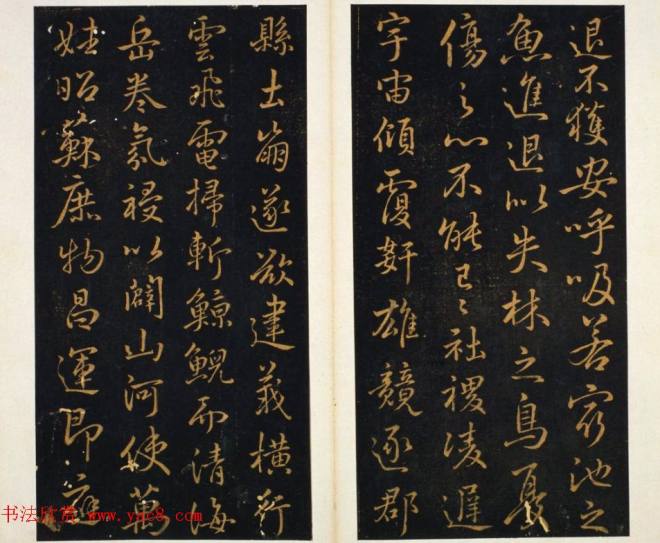 退不獲安呼吸若窮池之
魚進退以失林之鳥憂
傷之心不能已〻社稷淩遲
宇宙傾覆姧雄競逐郡
縣土崩遂欲建義橫行
雲飛電掃斬鯨鯢而清海
岳卷氛祲以闢山河使萬
姓昭蘇庶物昌運即應
书法欣赏 www.yac8.com